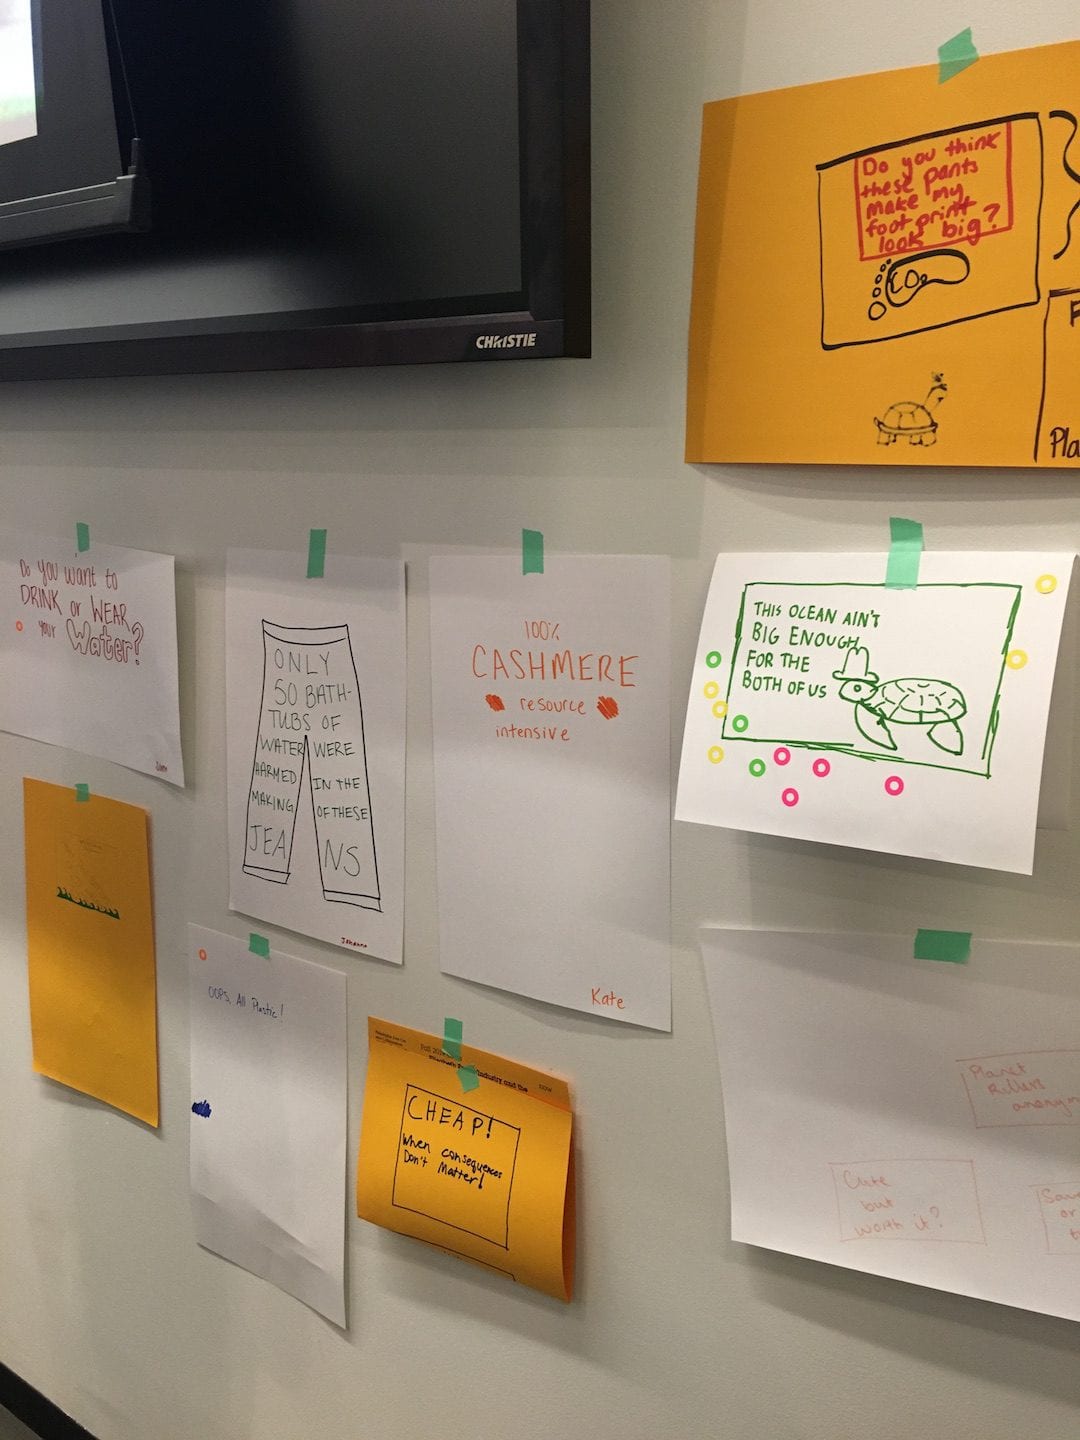 CHRISTIE
Do you think
these pants
make my
foot print
look big?
CO₂
Pla
Do you want to
DRINK or WEAR
your Water?
ONLY
50 BATH-
TUBS OF
WATER WERE
HARMED IN THE
MAKING OF THESE
JEA NS
Johanna
100%
CASHMERE
resource
intensive
Kate
THIS OCEAN AIN'T
BIG ENOUGH
FOR THE
BOTH OF US
OOPS, All Plastic!
Industry and the
CHEAP!
When consequences
Don't Matter!
Planet
Killers
anonym
Cute
but
worth it?
or